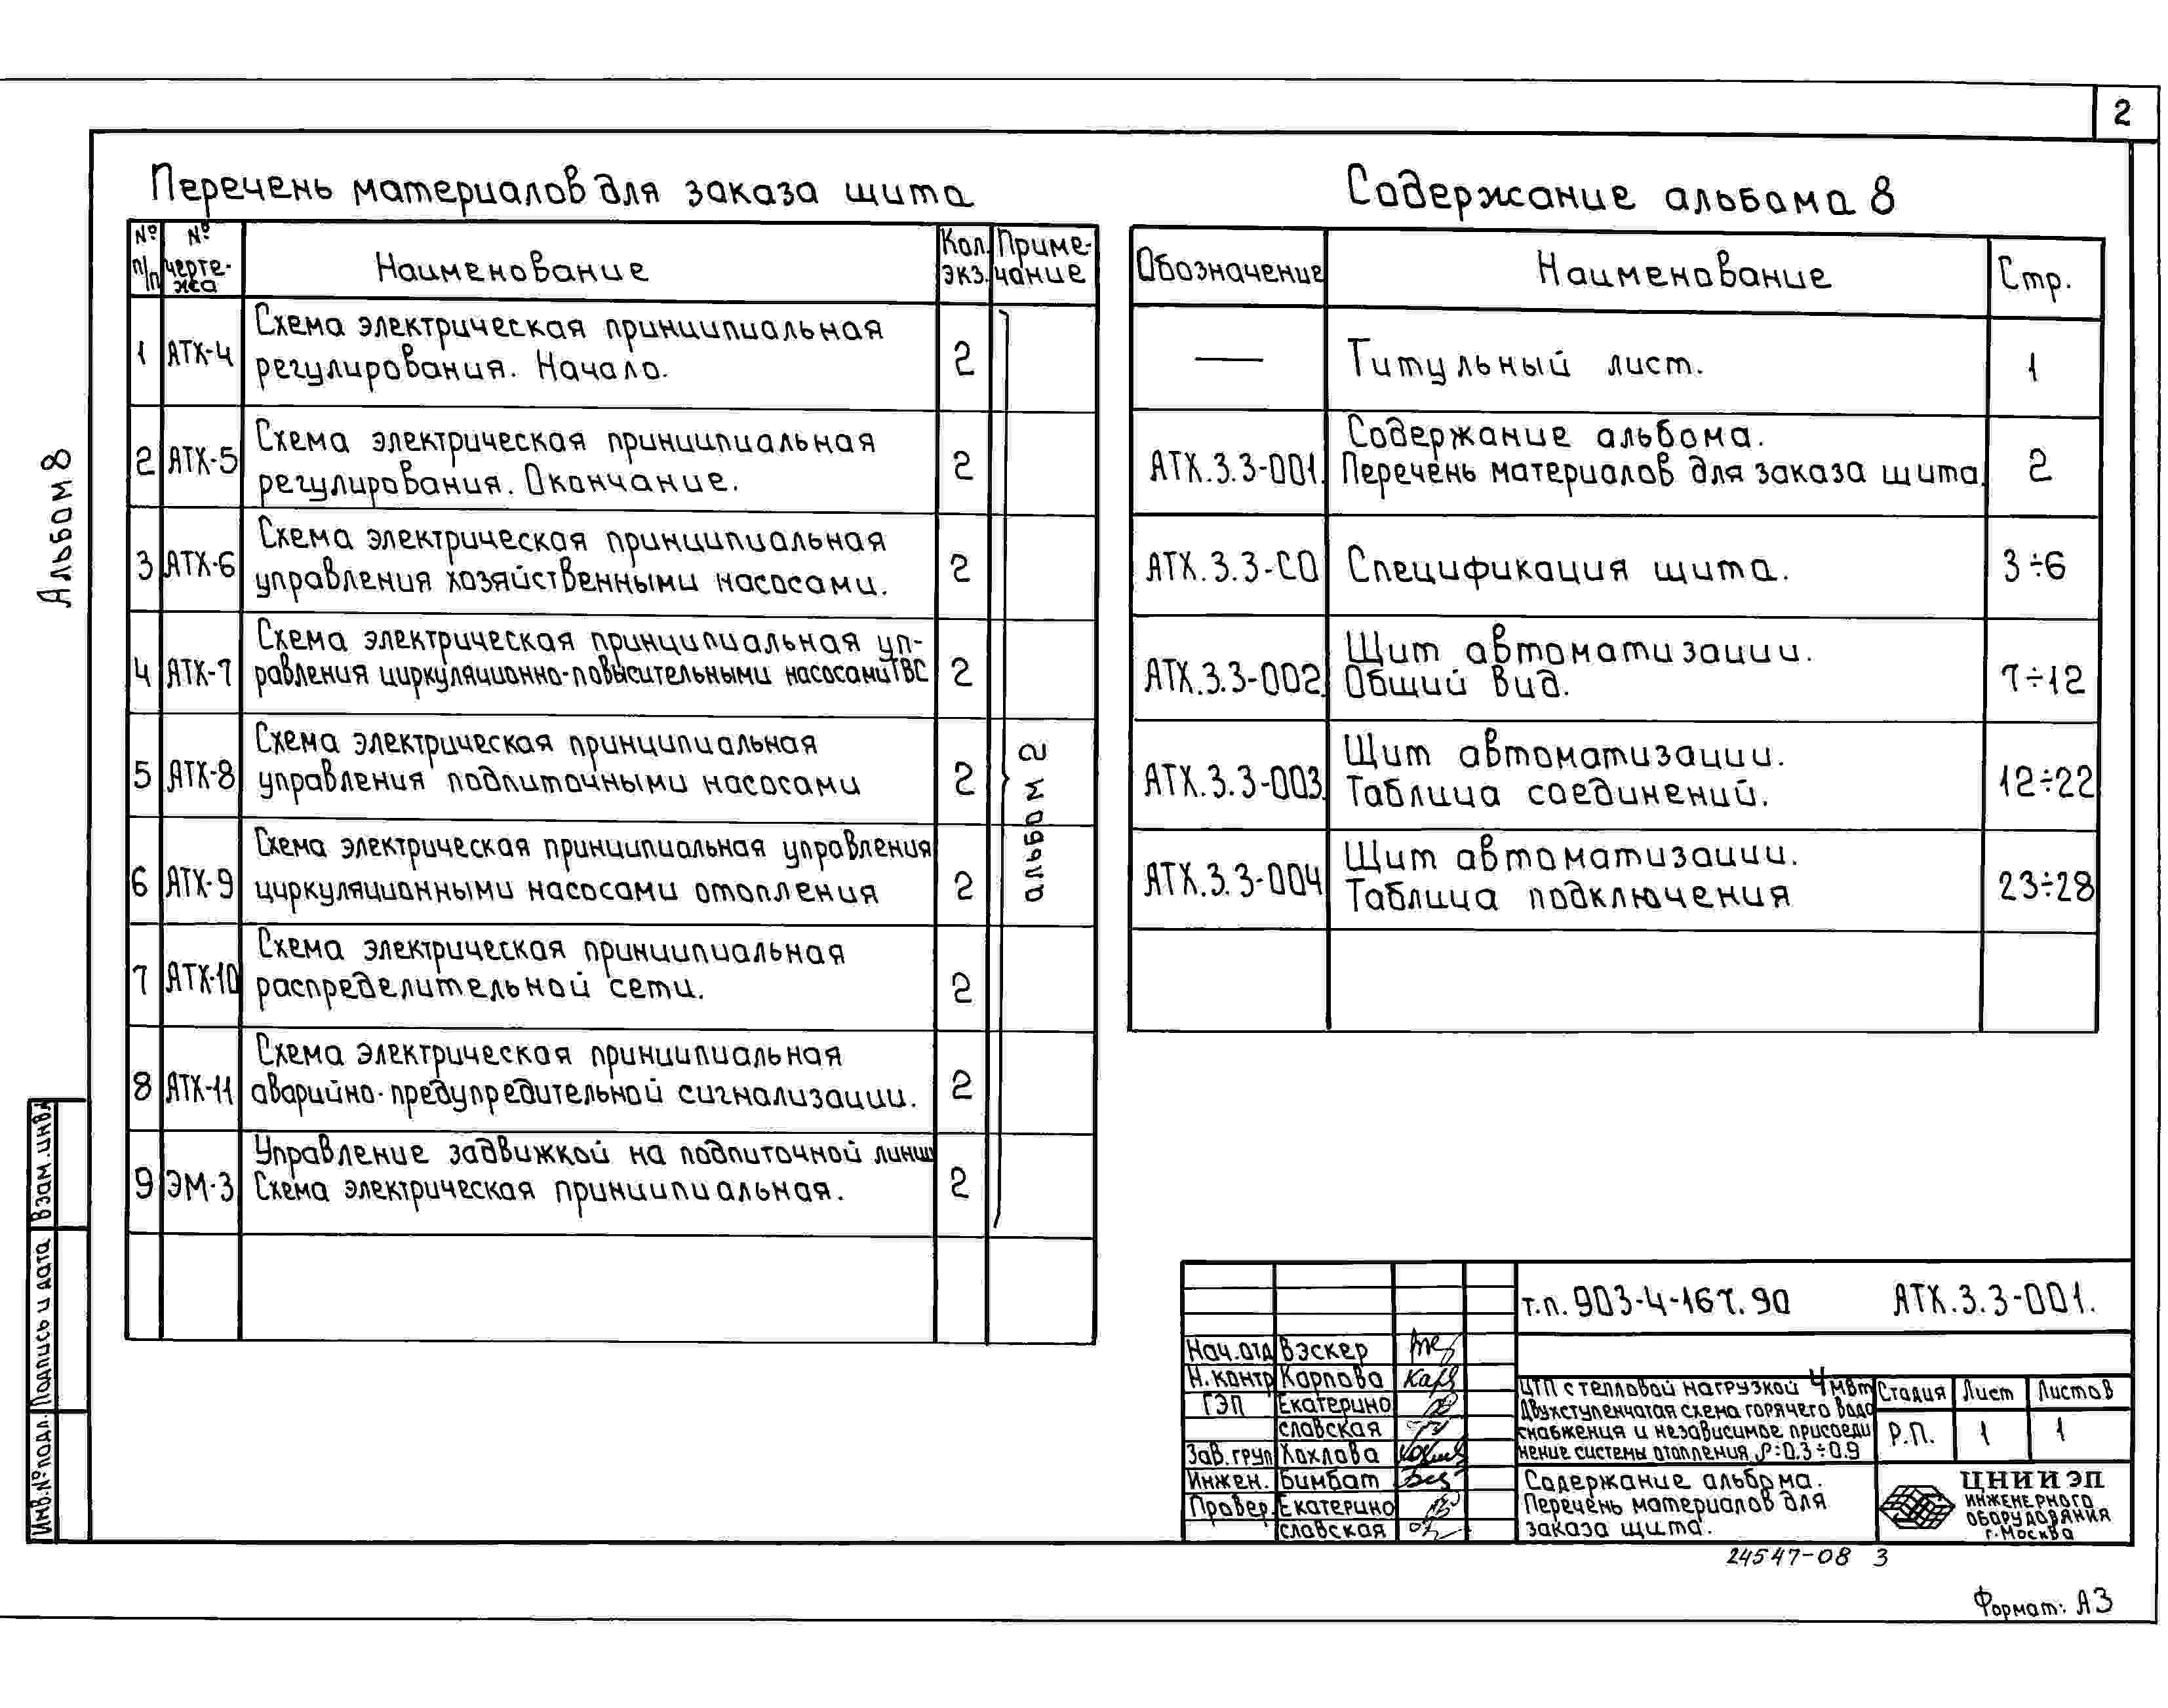 2
Перечень материалов для заказа щита
№ п/п
№ чертежа
Наименование
Кол. экз.
Примечание
1 АТХ-4 Схема электрическая принципиальная
регулирования. Начало. 2
2 АТХ-5 Схема электрическая принципиальная
регулирования. Окончание. 2
3 АТХ-6 Схема электрическая принципиальная
управления хозяйственными насосами. 2
4 АТХ-7 Схема электрическая принципиальная уп-
равления циркуляционно-повысительными насосами ГВС 2
5 АТХ-8 Схема электрическая принципиальная
управления подпиточными насосами 2
6 АТХ-9 Схема электрическая принципиальная управления
циркуляционными насосами отопления 2
7 АТХ-10 Схема электрическая принципиальная
распределительной сети. 2
8 АТХ-11 Схема электрическая принципиальная
аварийно-предупредительной сигнализации. 2
9 ЭМ-3 Управление задвижкой на подпиточной линии
Схема электрическая принципиальная. 2
альбом 2
Содержание альбома 8
Обозначение Наименование Стр.
— Титульный лист. 1
АТХ.3.3-001. Содержание альбома.
Перечень материалов для заказа щита. 2
АТХ.3.3-СО Спецификация щита. 3÷6
АТХ.3.3-002. Щит автоматизации.
Общий вид. 7÷12
АТХ.3.3-003. Щит автоматизации.
Таблица соединений. 12÷22
АТХ.3.3-004 Щит автоматизации.
Таблица подключения 23÷28
Альбом 8
Взам. инв.
Подпись и дата
Инв. № подл.
т.п. 903-4-167.90 АТХ.3.3-001.
Нач. отд Вэскер
Н. контр Карпова
ГЭП Екатерино
славская
Зав. груп Хохлова
Инжен. Бимбат
Провер. Екатерино
славская
ЦТП с тепловой нагрузкой 4 МВт
Двухступенчатая схема горячего водо
снабжения и независимое присоеди
нение системы отопления ρ=0.3÷0.9
Стадия Лист Листов
Р.П. 1 1
Содержание альбома.
Перечень материалов для
заказа щита.
ЦНИИЭП
ИНЖЕНЕРНОГО
ОБОРУДОВАНИЯ
г. Москва
24547-08 3
Формат: А3